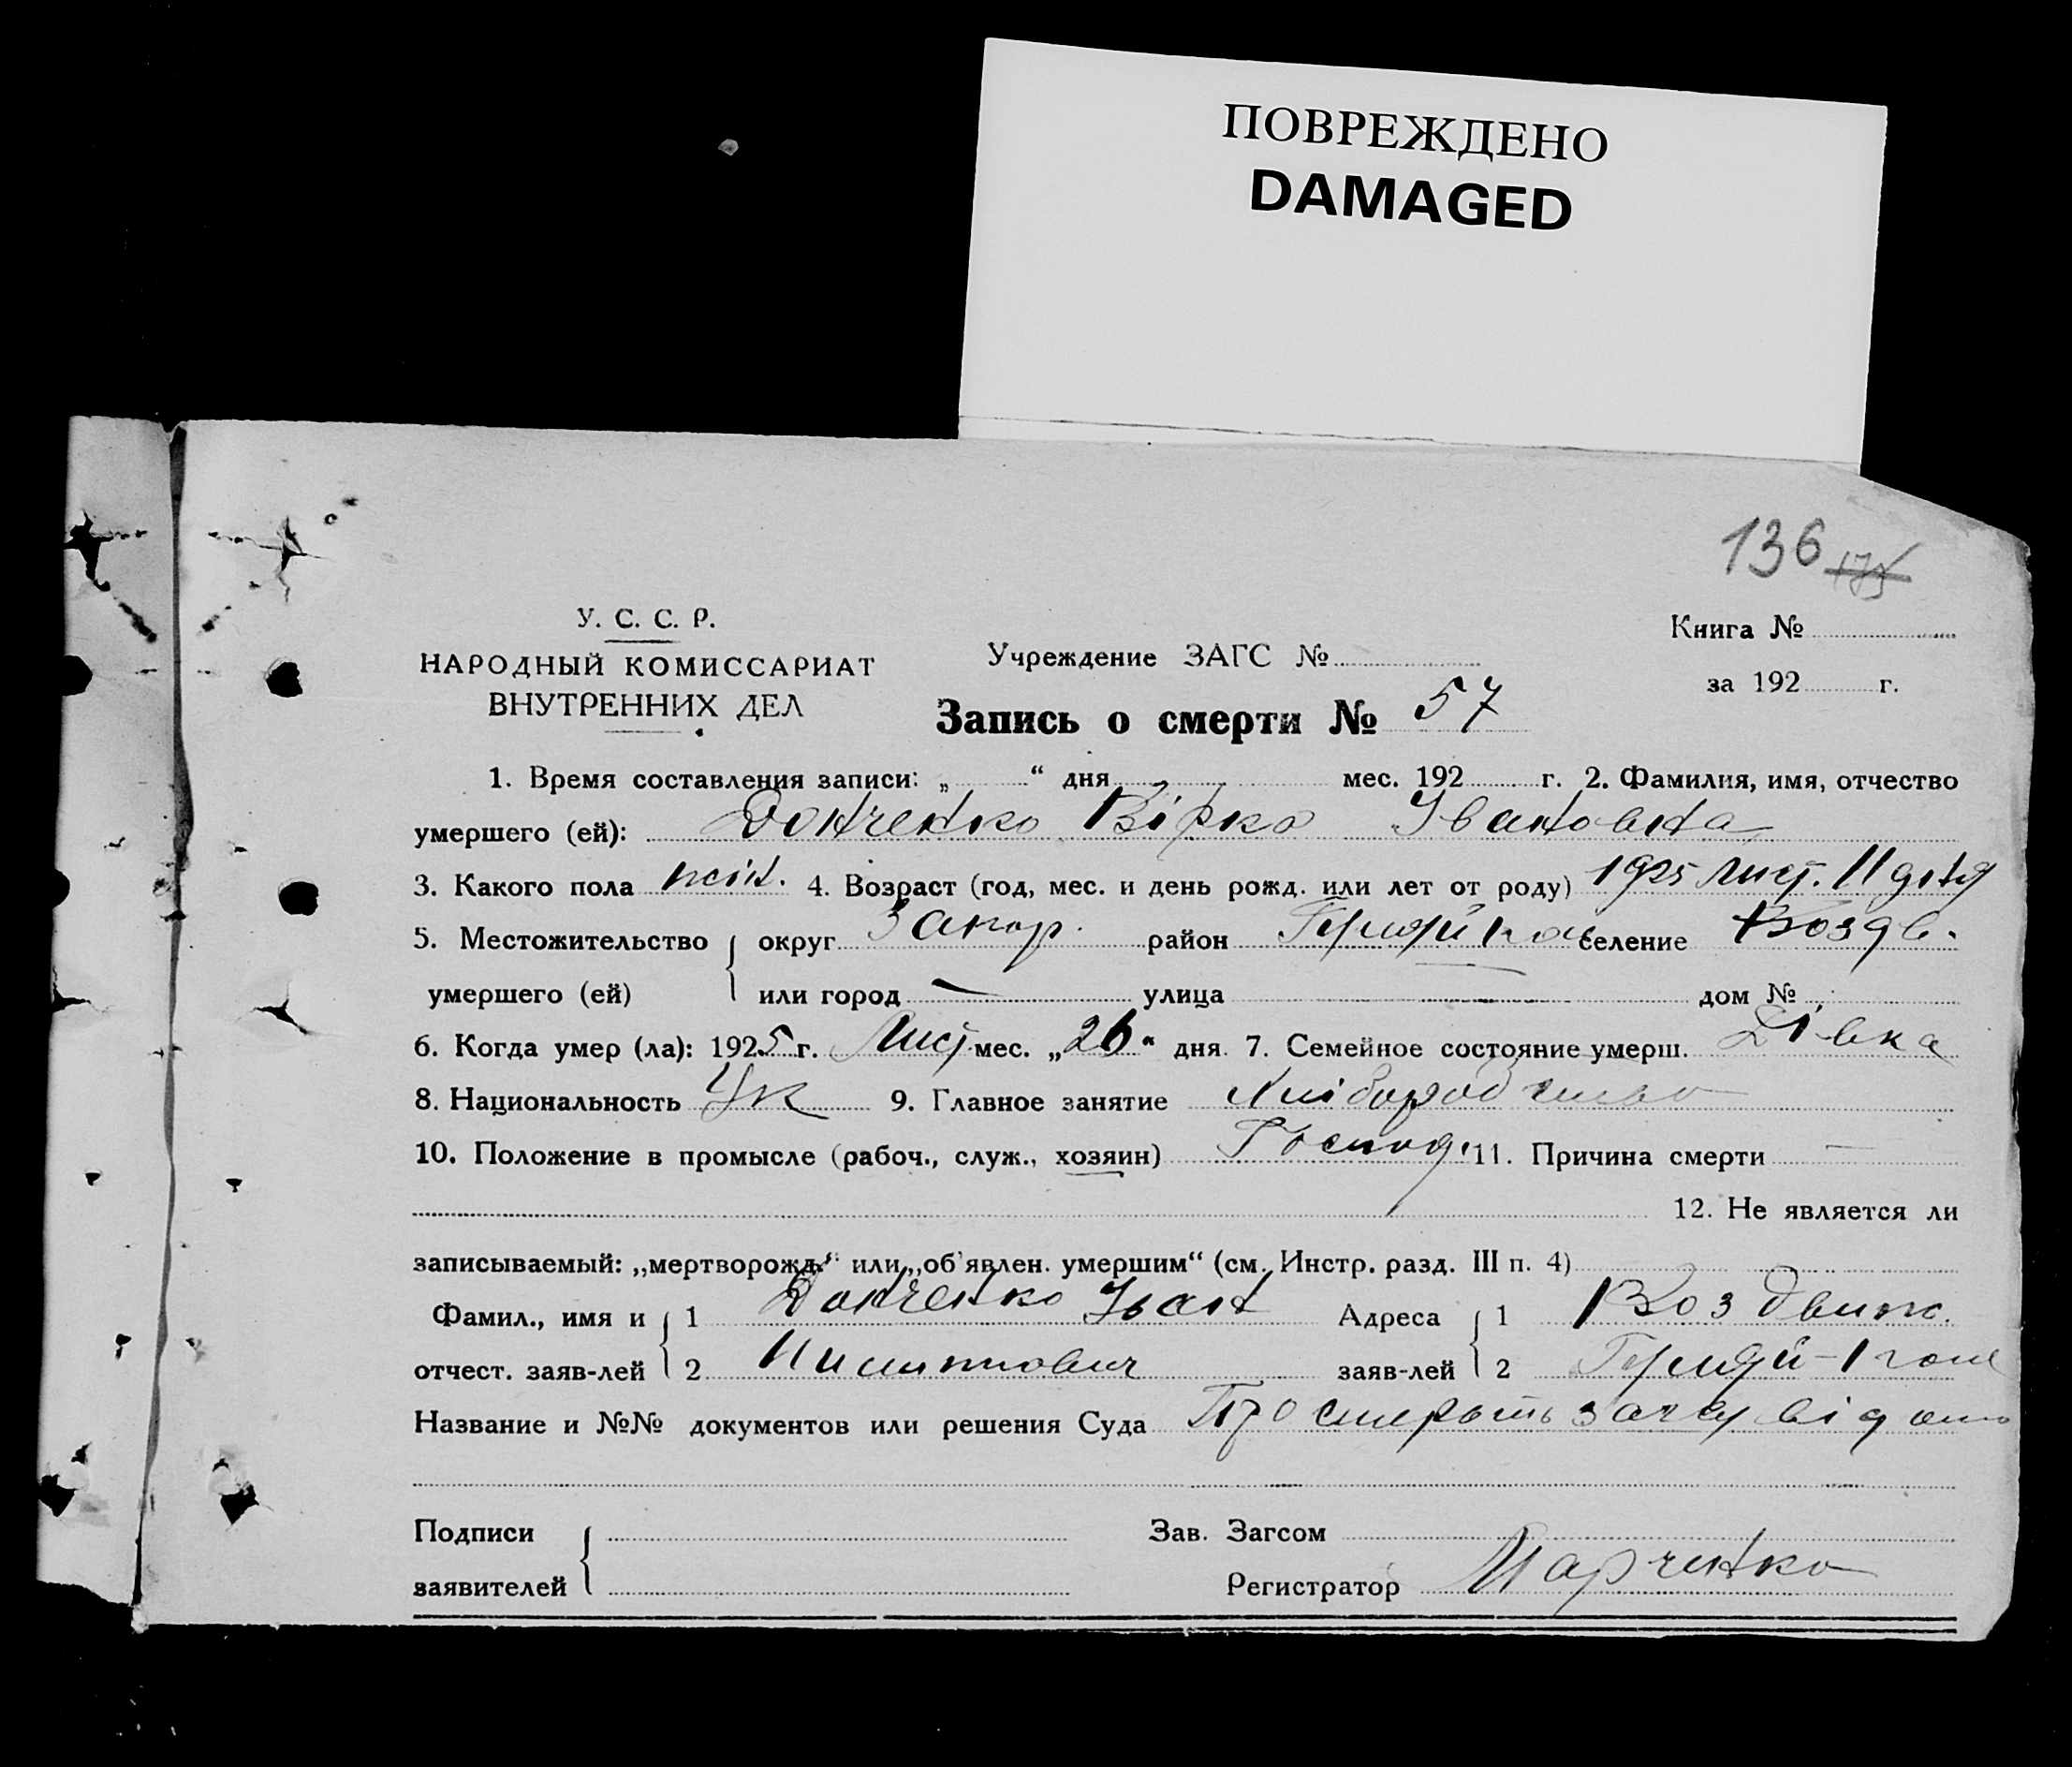 ПОВРЕЖДЕНО
DAMAGED
136 175
У. С. С. Р.
НАРОДНЫЙ КОМИССАРИАТ
ВНУТРЕННИХ ДЕЛ
Учреждение ЗАГС №
Книга №
за 192 г.
Запись о смерти № 57
1. Время составления записи: „ “ дня мес. 192 г. 2. Фамилия, имя, отчество
умершего (ей): Донченко Вірка Івановна
3. Какого пола жін. 4. Возраст (год, мес. и день рожд. или лет от роду) 1925 Лист. 11 дня
5. Местожительство округ Запор. район селение Воздв.
умершего (ей) или город — улица — дом №
6. Когда умер (ла): 1925 г. Лист. мес. „26“ дня. 7. Семейное состояние умерш. Дівка
8. Национальность Ук 9. Главное занятие Хліборобство
10. Положение в промысле (рабоч., служ., хозяин) Господ. 11. Причина смерти —
12. Не является ли
записываемый: „мертворожд.“ или „об'явлен. умершим“ (см. Инстр. разд. III п. 4)
Фамил., имя и 1 Донченко Іван Адреса 1 Воздвиж.
отчест. заяв-лей 2 заяв-лей 2
Название и №№ документов или решения Суда Про смерть
Подписи Зав. Загсом
заявителей Регистратор Марченко